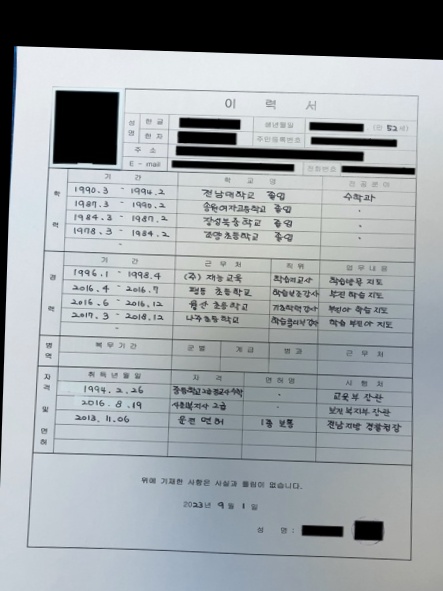 이 력 서
성명 한 글 생년월일 (만 52세)
한 자 주민등록번호
주 소
E - mail 전화번호
학력 기 간 학 교 명 전공분야
1990. 3 ~ 1994. 2 전남대학교 졸업 수학과
1987. 3 ~ 1990. 2 송원여자고등학교 졸업 "
1984. 3 ~ 1987. 2 장성북중학교 졸업 "
1978. 3 ~ 1984. 2 초등학교 졸업 "
~
경력 기 간 근 무 처 직위 업무내용
1996. 1 ~ 1998. 4 (주) 재능교육 학습지교사 학습방문 지도
2016. 4 ~ 2016. 7 초등학교 학습보조강사 부진 학습 지도
2016. 6 ~ 2016. 12 월산 초등학교 기초학력강사 부진아 학습 지도
2017. 3 ~ 2018. 12 나주초등학교 학습 부진아 지도
~
병역 복무기간 군별 계급 병과 근 무 처
자격 및 면허 취득년월일 자 격 면허명 시 행 처
1994. 2. 26 중등학교2급정교사수학 · 교육부 장관
2016. 8. 19 사회복지사 2급 · 보건복지부 장관
2013. 11. 06 운전 면허 1종 보통 전남지방 경찰청장
위에 기재한 사항은 사실과 틀림이 없습니다.
2023년 9 월 1 일
성 명 :